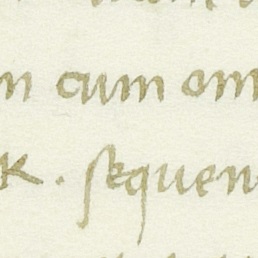 n cum om
K. sequen